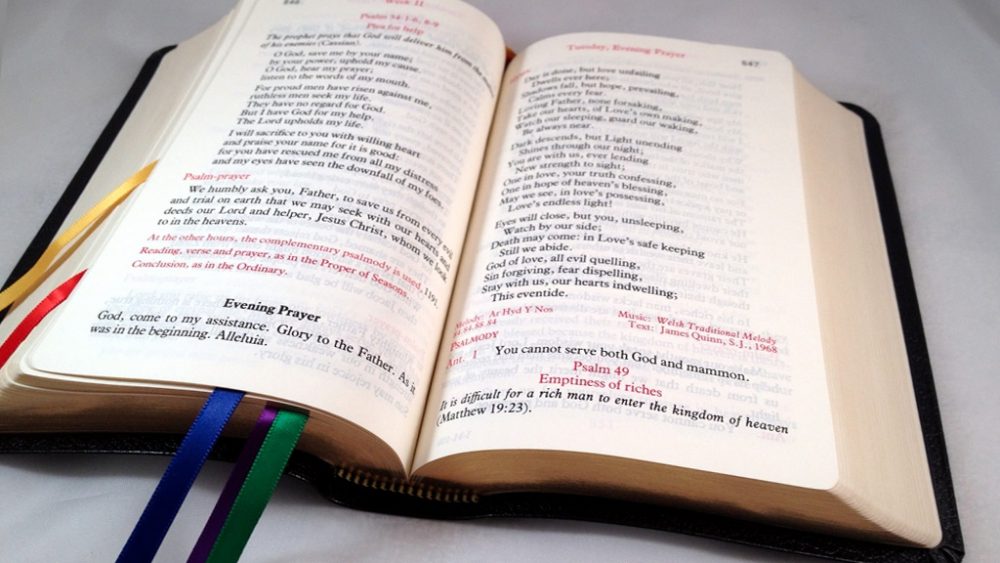 846
Week II
Psalm 54:1-6, 8-9
Plea for help
The prophet prays that God will deliver him from the
of his enemies (Cassian).
O God, save me by your name;
by your power, uphold my cause.
O God, hear my prayer;
listen to the words of my mouth.
For proud men have risen against me,
ruthless men seek my life.
They have no regard for God.
But I have God for my help.
The Lord upholds my life.
I will sacrifice to you with willing heart
and praise your name for it is good:
for you have rescued me from all my distress
and my eyes have seen the downfall of my foes.
Psalm-prayer
We humbly ask you, Father, to save us from every evil
and trial on earth that we may seek with our hearts and
deeds our Lord and helper, Jesus Christ, whom we look
to in the heavens.
At the other hours, the complementary psalmody is used, 1191.
Reading, verse and prayer, as in the Proper of Seasons.
Conclusion, as in the Ordinary.
Evening Prayer
God, come to my assistance. Glory to the Father. As it
was in the beginning. Alleluia.
Tuesday, Evening Prayer 847
Day is done, but love unfailing
Dwells ever here;
Shadows fall, but hope, prevailing,
Calms every fear.
Loving Father, none forsaking,
Take our hearts, of Love's own making,
Watch our sleeping, guard our waking,
Be always near.
Dark descends, but Light unending
Shines through our night;
You are with us, ever lending
New strength to sight;
One in love, your truth confessing,
One in hope of heaven's blessing,
May we see, in love's possessing,
Love's endless light!
Eyes will close, but you, unsleeping,
Watch by our side;
Death may come: in Love's safe keeping
Still we abide.
God of love, all evil quelling,
Sin forgiving, fear dispelling,
Stay with us, our hearts indwelling;
This eventide.
Melody: Ar Hyd Y Nos Music: Welsh Traditional Melody
84.84.88 84 Text: James Quinn, S.J., 1968
PSALMODY
Ant. 1 You cannot serve both God and mammon.
Psalm 49
Emptiness of riches
It is difficult for a rich man to enter the kingdom of heaven
(Matthew 19:23).